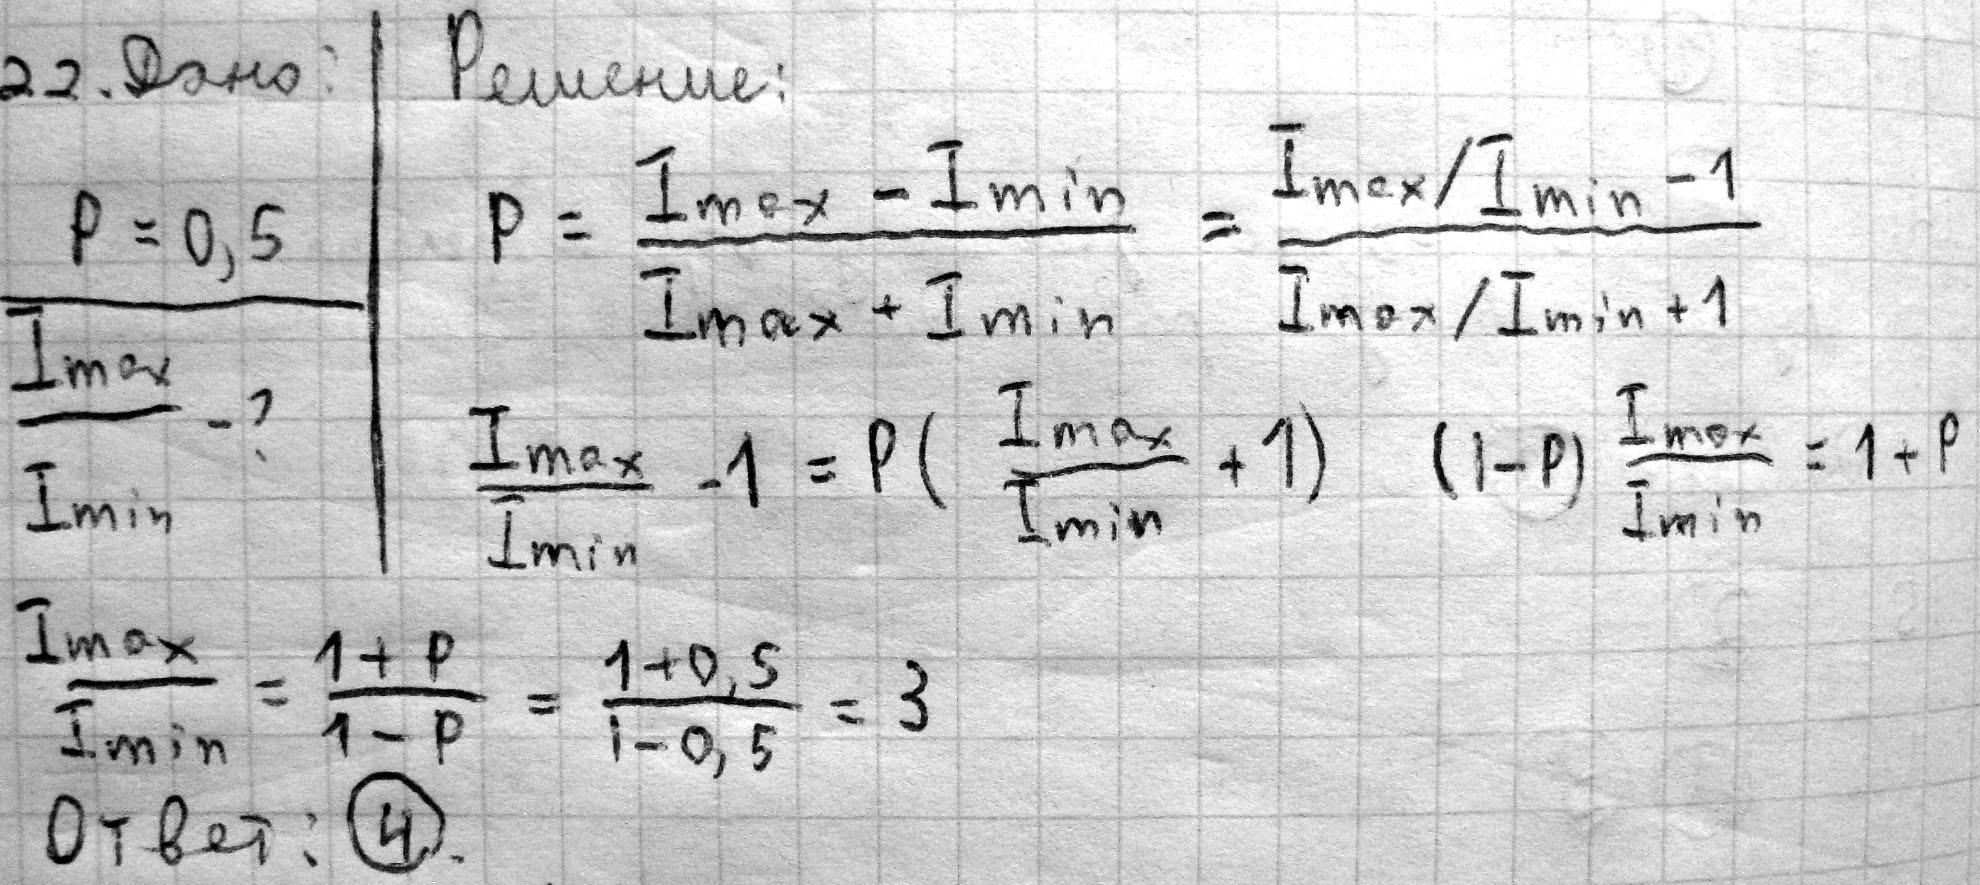 22. Дано:
P = 0,5
Imax / Imin - ?
Решение:
P = (Imax - Imin) / (Imax + Imin) = (Imax/Imin - 1) / (Imax/Imin + 1)
Imax / Imin - 1 = P( Imax / Imin + 1) (1-P) Imax / Imin = 1 + P
Imax / Imin = (1 + P) / (1 - P) = (1+0,5) / (1-0,5) = 3
Ответ: 4.